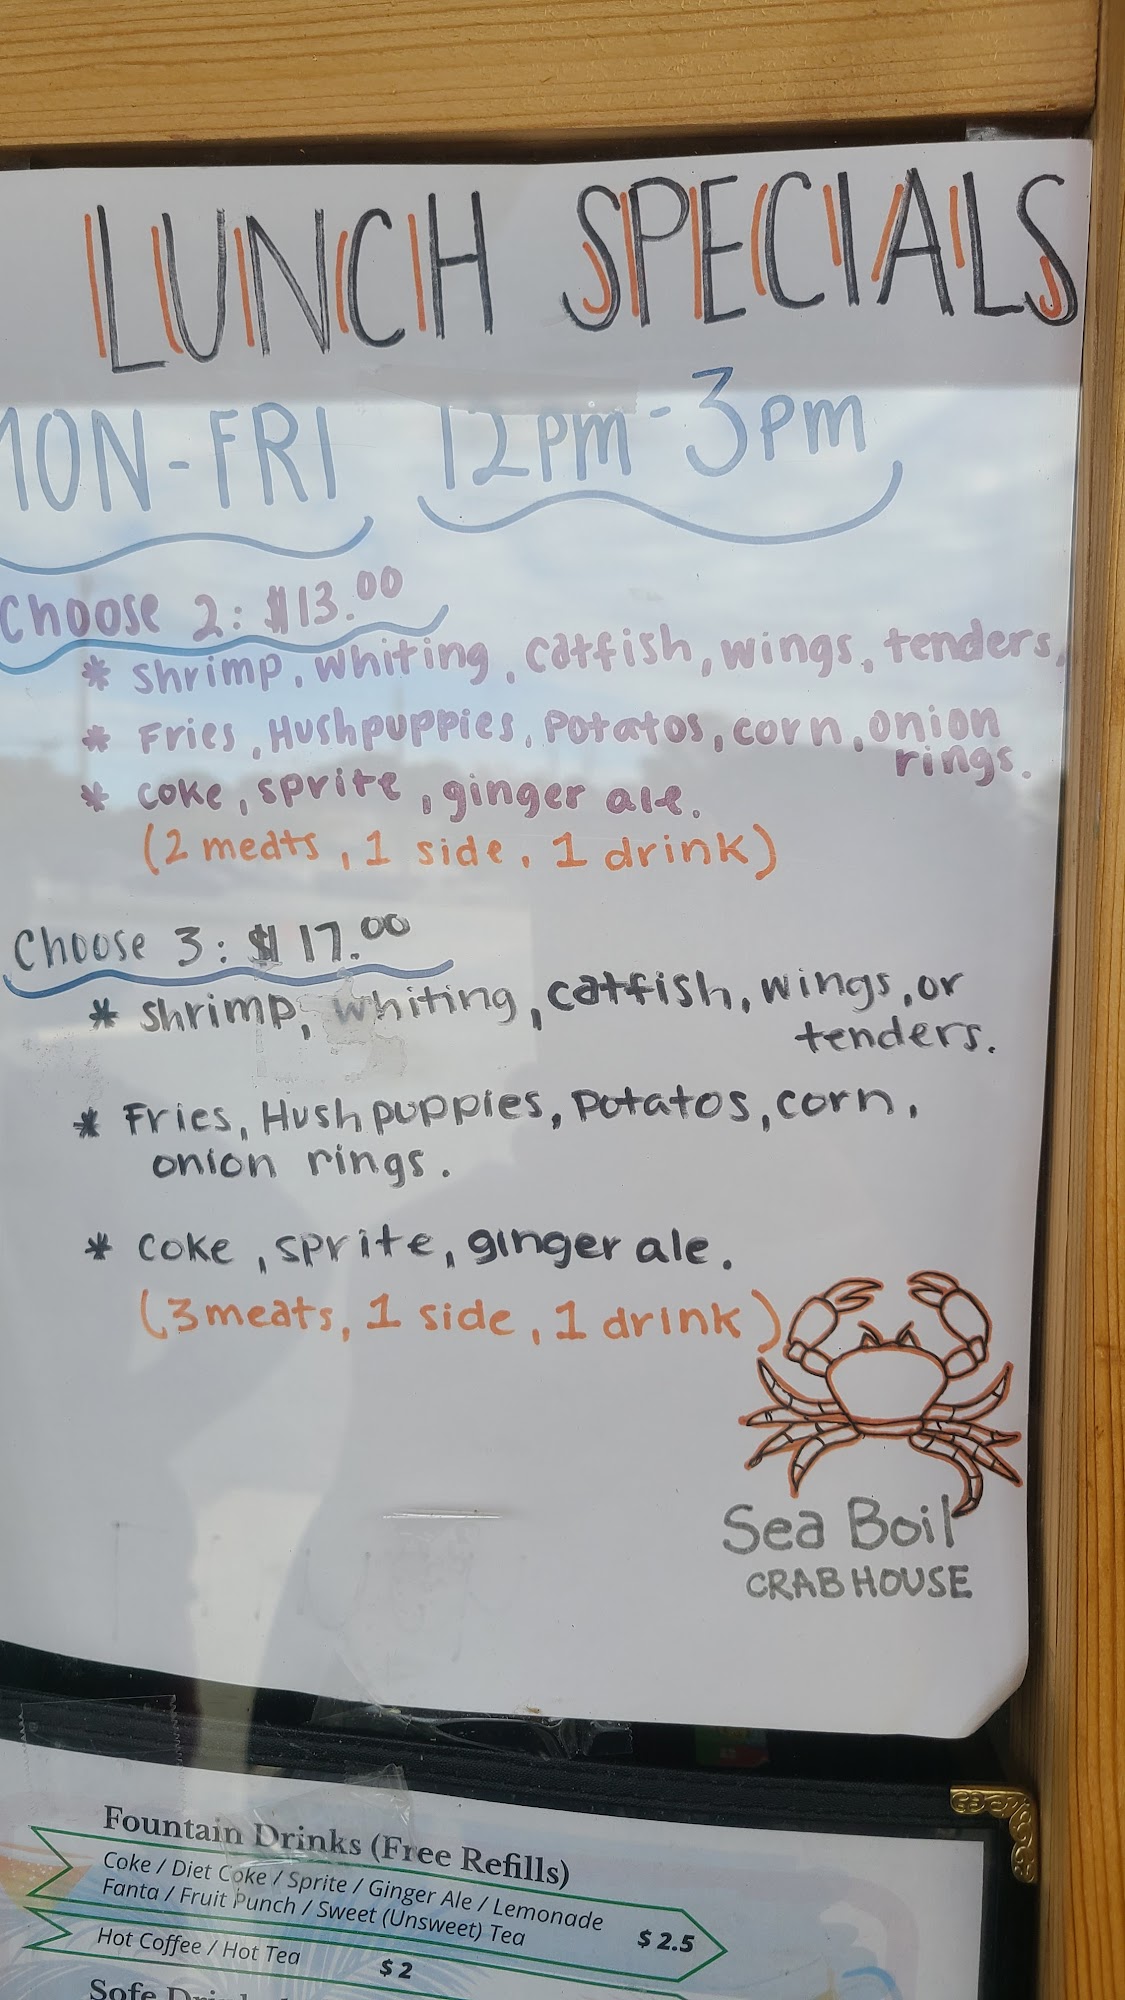 LUNCH SPECIALS
MON-FRI 12pm-3pm
Choose 2: $13.00
* shrimp, whiting, catfish, wings, tenders,
* Fries, Hushpuppies, Potatos, corn, onion
rings.
* coke, sprite, ginger ale.
(2 meats, 1 side, 1 drink)
Choose 3: $17.00
* shrimp, whiting, catfish, wings, or
tenders.
* Fries, Hushpuppies, Potatos, corn,
onion rings.
* coke, sprite, ginger ale.
(3 meats, 1 side, 1 drink)
Sea Boil
CRAB HOUSE
Fountain Drinks (Free Refills)
Coke / Diet Coke / Sprite / Ginger Ale / Lemonade
Fanta / Fruit Punch / Sweet (Unsweet) Tea $ 2.5
Hot Coffee / Hot Tea $ 2